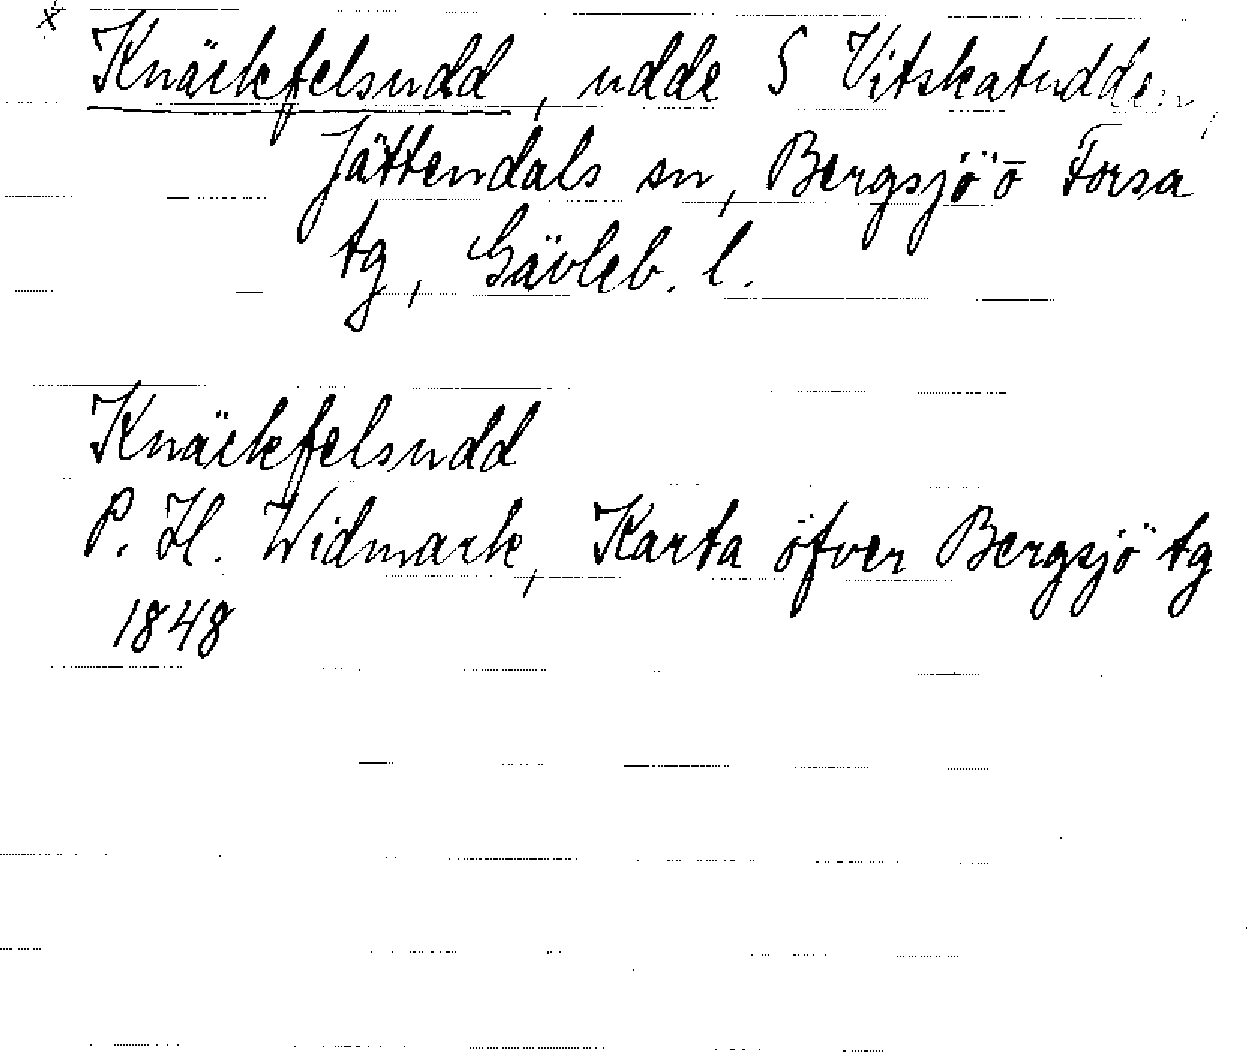 x Knäckfelsudd, udde S Vitskatudden,
Jättendals sn, Bergsjö o Forsa
tg, Gävleb. l.
Knäckfelsudd
P. H. Widmark, Karta öfver Bergsjö tg
1848